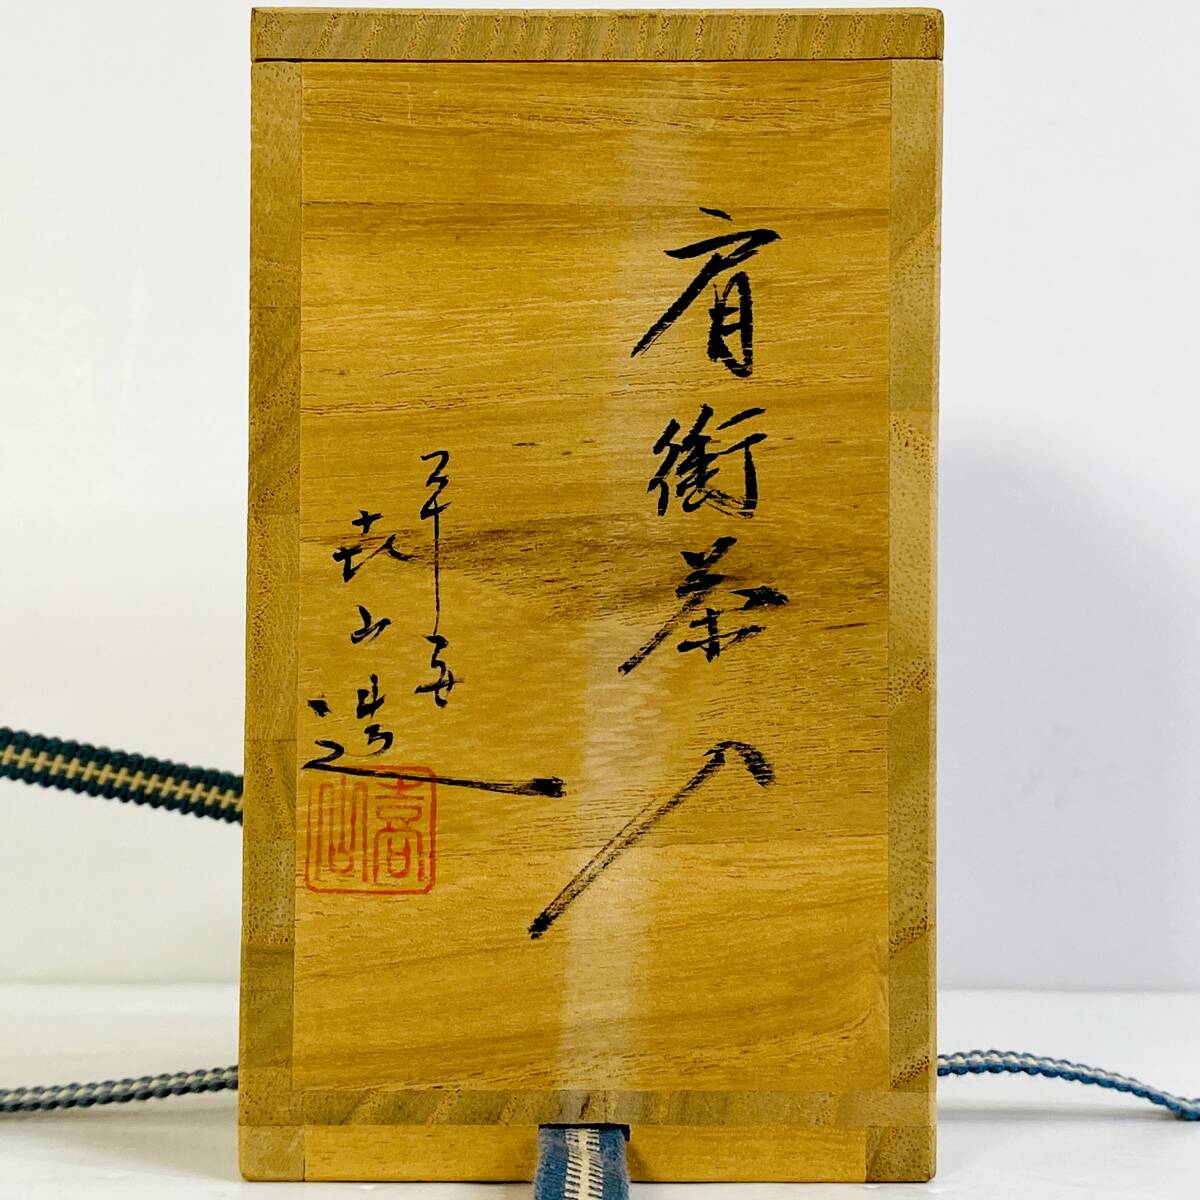 肩衝茶入
平安
喜山造
喜山